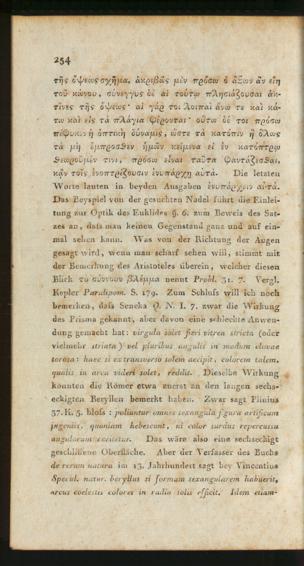 254
τῆς ὄψεως σχῆμα, ἀκριβῶς μὲν πρόσω ὁ ἄξων ἂν εἴη
τοῦ κώνου, σύνεγγυς δὲ αἱ τούτῳ πλησιάζουσαι ἀκ-
τῖνες τῆς ὄψεως· αἱ γάρ τοι λοιπαὶ ἄνω τε καὶ κά-
τω καὶ εἰς τὰ πλάγια φέρονται· οὕτω δέ τοι πρόσω
πέφυκεν ἡ ὀπτικὴ δύναμις, ὥστε τὰ κατόπιν ἢ ὅλως
τὰ μὴ ἔμπροσθεν ἡμῶν κείμενα εἰ ἐν κατόπτρῳ
θεωροῦμέν τινι, πρόσω εἶναι ταῦτα φαντάζεσθαι,
κἂν τοῖς ἐνοπτρίζουσιν ἐνυπάρχῃ αὐτά. Die letzten
Worte lauten in beyden Ausgaben ἐνυπάρχειν αὐτά.
Das Beyspiel von der gesuchten Nadel führt die Einlei-
tung zur Optik des Euklides §. 6. zum Beweis des Sat-
zes an, daſs man keinen Gegenstand ganz und auf ein-
mal sehen kann. Was von der Richtung der Augen
gesagt wird, wenn man scharf sehen will, stimmt mit
der Bemerkung des Aristoteles überein, welcher diesen
Blick τὸ σύννουν βλέμμα nennt Probl. 31. 7. Vergl.
Kepler Paralipom. S. 179. Zum Schluſs will ich noch
bemerken, daſs Seneka Q. N. I. 7. zwar die Wirkung
des Prisma gekannt, aber davon eine schlechte Anwen-
dung gemacht hat: virgula solet fieri vitrea striata (oder
vielmehr stricta) vel pluribus angulis in modum clavae
torosa: haec si ex transverso solem accipit, colorem talem,
qualis in arcu videri solet, reddit. Dieselbe Wirkung
konnten die Römer etwa zuerst an den langen sechs-
eckigten Beryllen bemerkt haben. Zwar sagt Plinius
37. K. 5. bloſs: poliuntur omnes sexangula figura artificum
ingeniis, quoniam hebescunt, ni color surdus repercussu
angulorum excitetur. Das wäre also eine sechseckigt
geschliffene Oberfläche. Aber der Verfasser des Buchs
de rerum natura im 13. Jahrhundert sagt bey Vincentius
Specul. natur. beryllus si formam sexangularem habuerit,
arcus coelestis colores in radio solis efficit. Idem etiam-